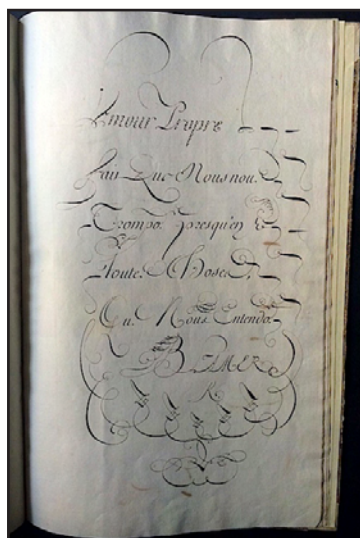 Amour Propre
Fait Que Nous nou.
Trompo. Presqu'en
Toute. Chose.
Nous Entendo.
BLAMER